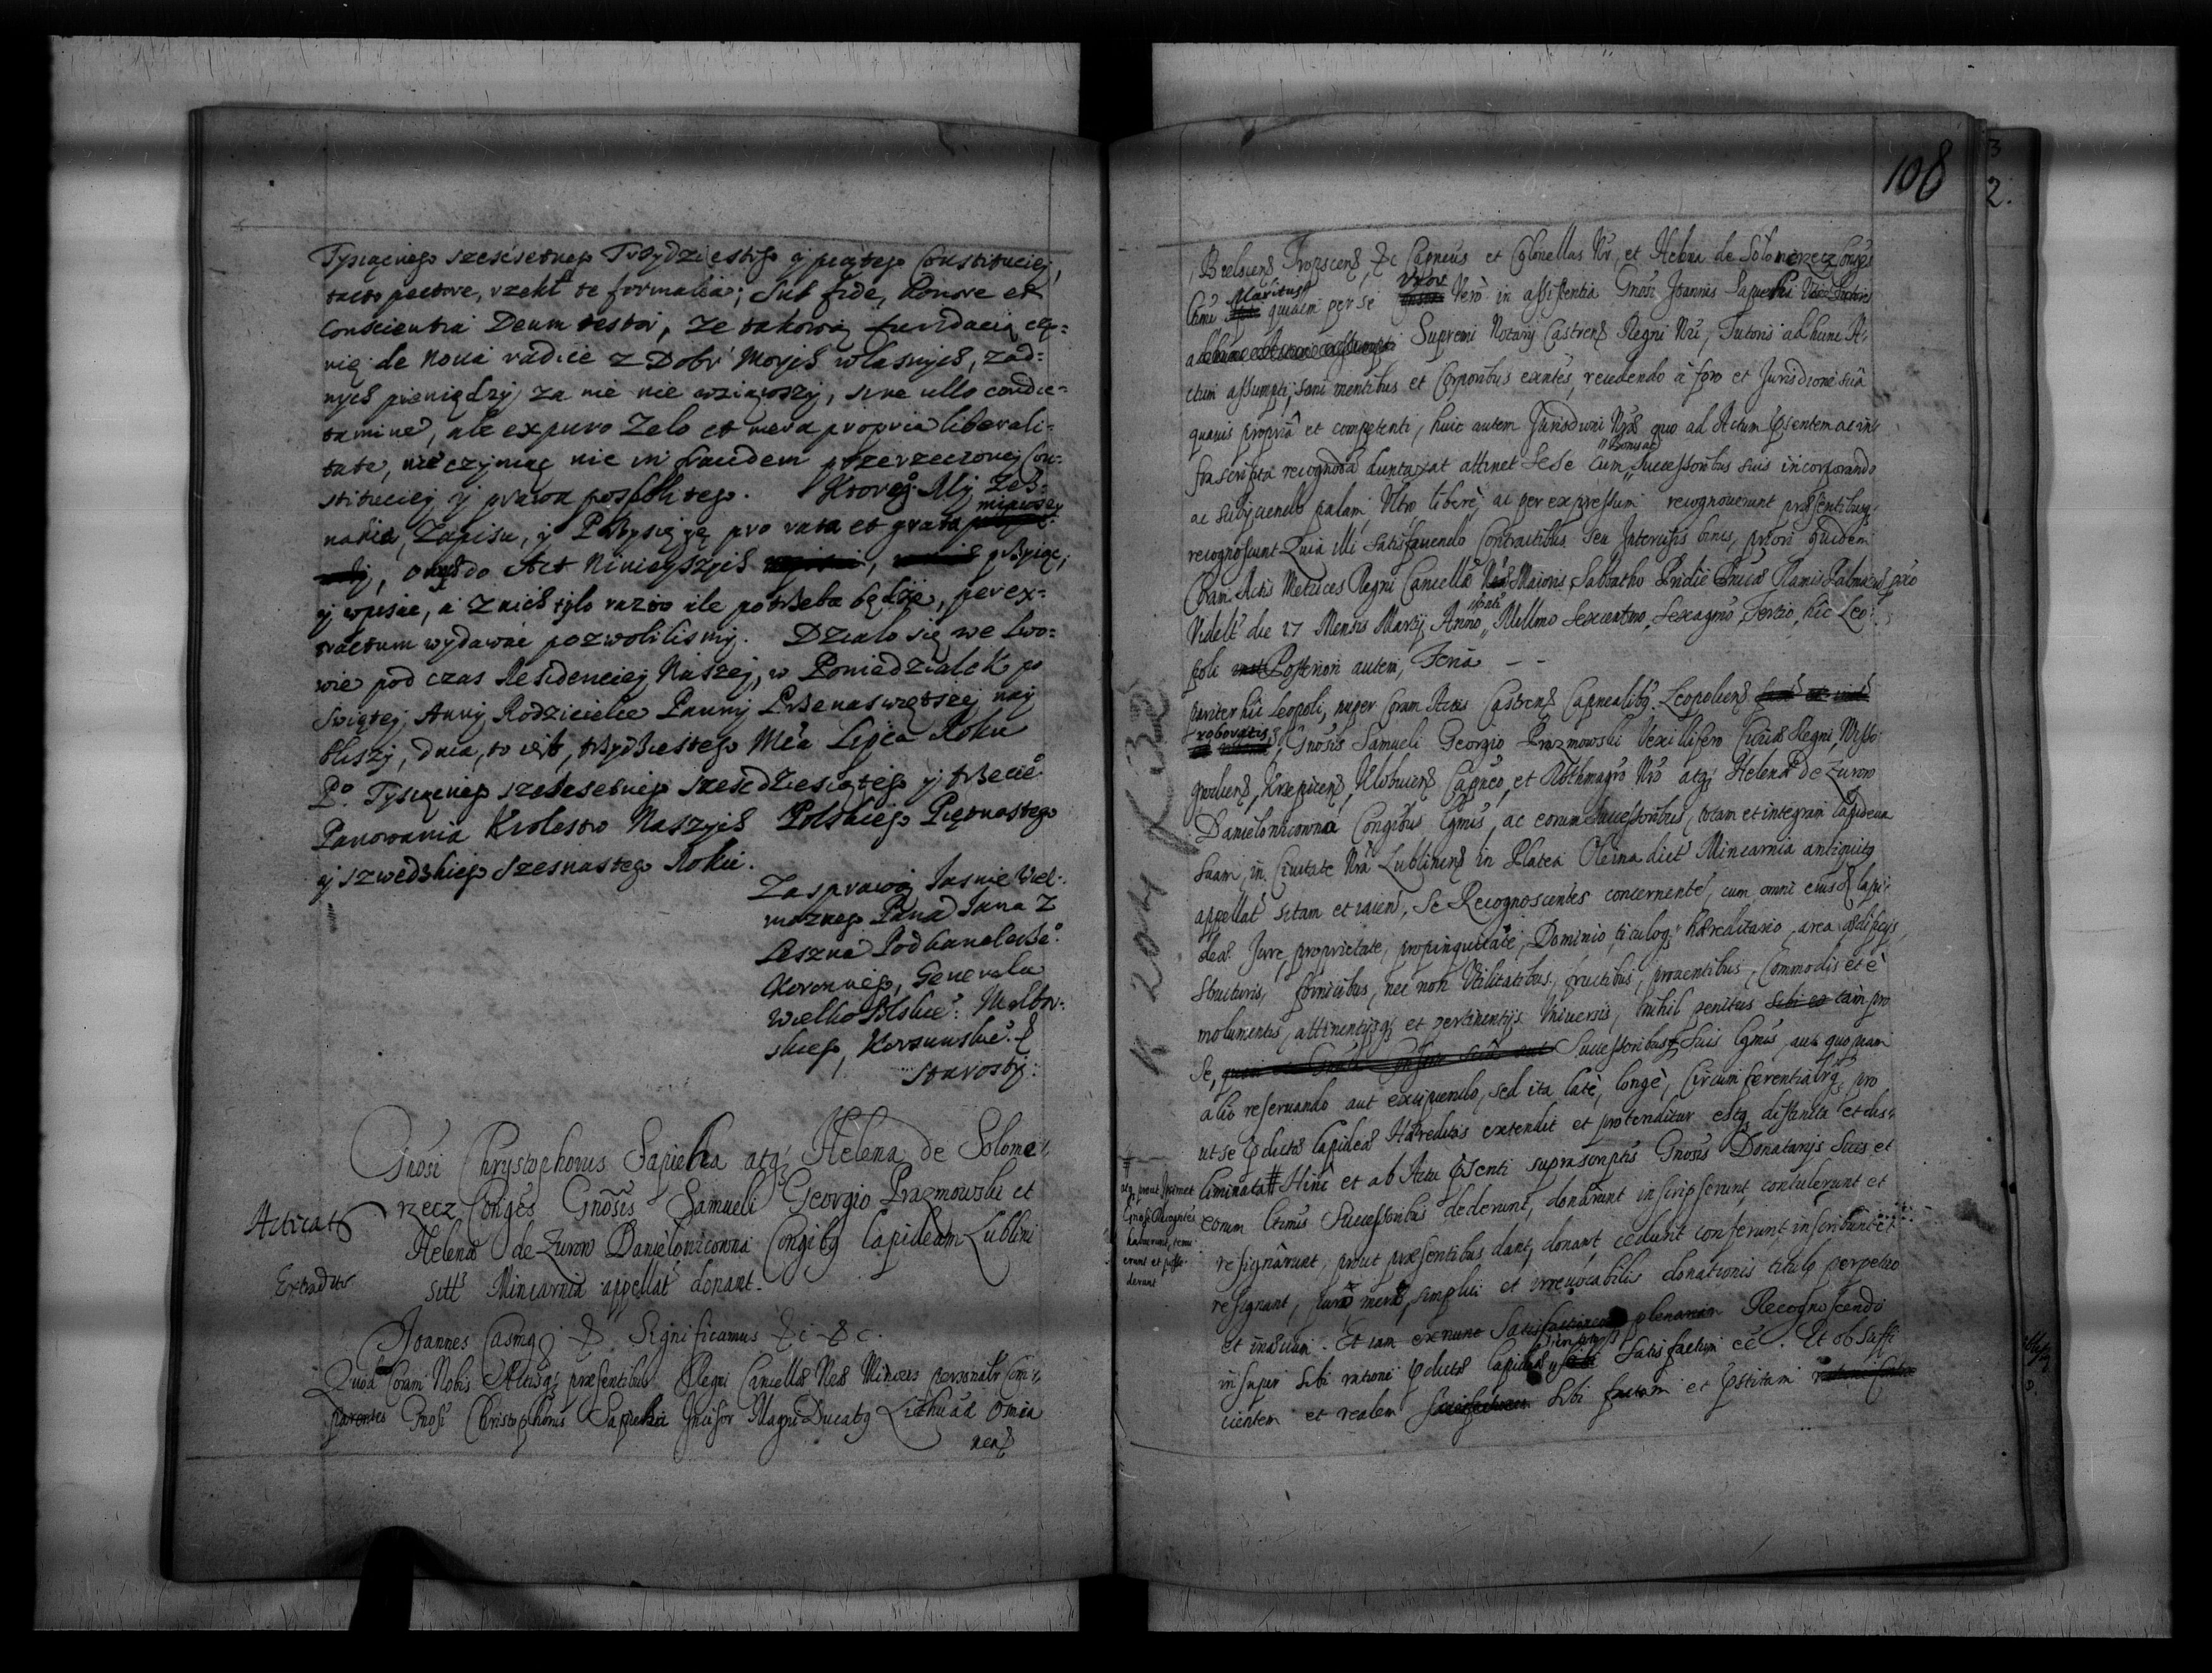 Tysiącnego sześćsetnego Trzydziestego y piątego Constituciey,
tacto pectore, rzekł te formalia; Sub fide, honore et
conscientia Deum testor, że takową fundacią czy=
nię de noua radice z Dobr moych własnych, żad=
nych pieniędzy za nie nie wziąwszy, sine ullo condic=
tamine, ale ex puro Zelo et mera propria liberali=
tate, nie czyniąc nic in fraudem przerzeczoney Con=
stituciey y prawa pospolitego. Ktorego My Zez=
nania, Zapisu, y Przysięgę pro rata et grata
miawszy
, onęż do Act Ninieyszych przyiąć,
y wpisać, a z nich tylo razow ile potrzeba będzie, per ex=
tractum wydawać pozwolilismy. Działo się we Lwo=
wie pod czas Residenciey Naszey, w Poniedziałek po
Swiętey Anny Rodzicielce Panny Przenaswiętszey nay
bliszy, dnia, to iest, trzydziestego Mca Lipca Roku
Po. Tysiącnego sześćsetnego sześćdziesiątego y trzecie
Panowania Krolestw Naszych Polskiego Piętnastego
y szwedzkiego szesnastego Roku.
Za sprawą Jasnie Wiel=
moznego Pana Jana z
Leszna Podkanclerze
Koronnego, Generała
Wielko Polskie: Malbor=
skiego, Korsunskie. &
Starosty.
Gnosi Chrystophorus Sapieha atq Helena de Solome=
rzecz Conges Gnosis Samueli Georgio Prazmowski et
Acticat
Helenæ de Zurow Danielowiczowna Congibg Lapideam Lublini
Extradit
sitt Mincarnia appellat donant.
Joannes Casimg & Significamus &c &c.
Quod Coram Nobis Actisq præsentibus Regni Cancellæ Næ Minoris personalr Com=
parentes Gnosi Christophorus Sapieha Incisor Magni Ducatg Lithuaæ Osmia
nens
108
3
2.
Bielscens Tropscens &c Capneus et Colonellus Nr, et Helena de Solomerecz Conges
Maritus Uxor
ltimi quidem per se Vero in assistentia Gnosi Joannis Sapieha
Supremi Notarij Castrens Regni Nri, Tutoris ad hunc A=
ctum assumpti, sani mentibus et Corporibus exntes, recedendo à foro et Jurisdione sua
quauis propria et competenti, huic autem Jurisdioni Nræ quo ad Actum psentem ac in=
Bonis ac
frascripta recognoda duntaxat attinet sese cum Successoribus suis incorporando
ac subijciendo palam, Ultro liberè, ac per expressum recognouerunt præsentibusq
recognoscunt Quia illi satisfaciendo Contractibus seu Intercisis binis, priori quidem
Coram Actis Metrices Regni Cancellæ Næ Maioris, Sabbatho Pridie Dnicæ Ramis Palmarum pxo
Videlt die 17 Mensis Martij Anno Millmo Sexcentmo, Sexagmo, Tertio, hic Leo=
poli Posteriori autem, Feria - -
pariter hic Leopoli, nuper Coram Actis Castrens Capnealibg Leopoliens
roboratis, Gnosis Samueli Georgio Prazmowski Vexillifero Curiæ Regni, Wisso=
grodiens, Krzepicens, Klobucens Capneo, et Rothmagro Nro atq Helenæ de Zurow
Danielowiczowna Congibus lgmis, ac eorum Successoribus, totam et integram lapideam
suam, in Ciuitate Nra Lublinens in Platea Oleina dict Mincarnia antiquitg
appellat sitam et iacen, se Recognoscentes concernente, cum omni eiusd lapi=
deæ Jure, proprietate, propinquitate, Dominio, tituloq hæreditario, area ædificijs,
structuris, fornicibus, nec non Utilitatibus, fructibus, prouentibus, Commodis et e=
molumentis, attinentijsq et pertinentijs Uniuersis, nihil penitus tam pro
se, Successoribusq Suis lgmis, aut quopiam
alio reseruando aut excipiendo, sed ita latè, longè, Circumferentialrq pro
ut se pdicta lapidea Hæreditas extendit et protenditur estq distincta et dis=
liminata # Hinc et ab Actu psenti suprascriptis Gnosis Donatarijs suis et
eorum ltimis Successoribus dederunt, donârunt inscripserunt, contulerunt et
resignârunt, prout præsentibus dant, donant, cedunt conferunt inscribunt et
resignant, pura mera, simplici et irreuocabilis donationis titulo perpetuo
et in æuum. Recognoscendo
insuper sibi rationi pdictæ lapideæ satisfactum eê. Et ob suffi
cientem et realem sibi factam et pstitam
# atq prout ipsimet
Gnosi Recogntes
habuerunt, tenu
erunt et posse
derunt
K 204 K 38